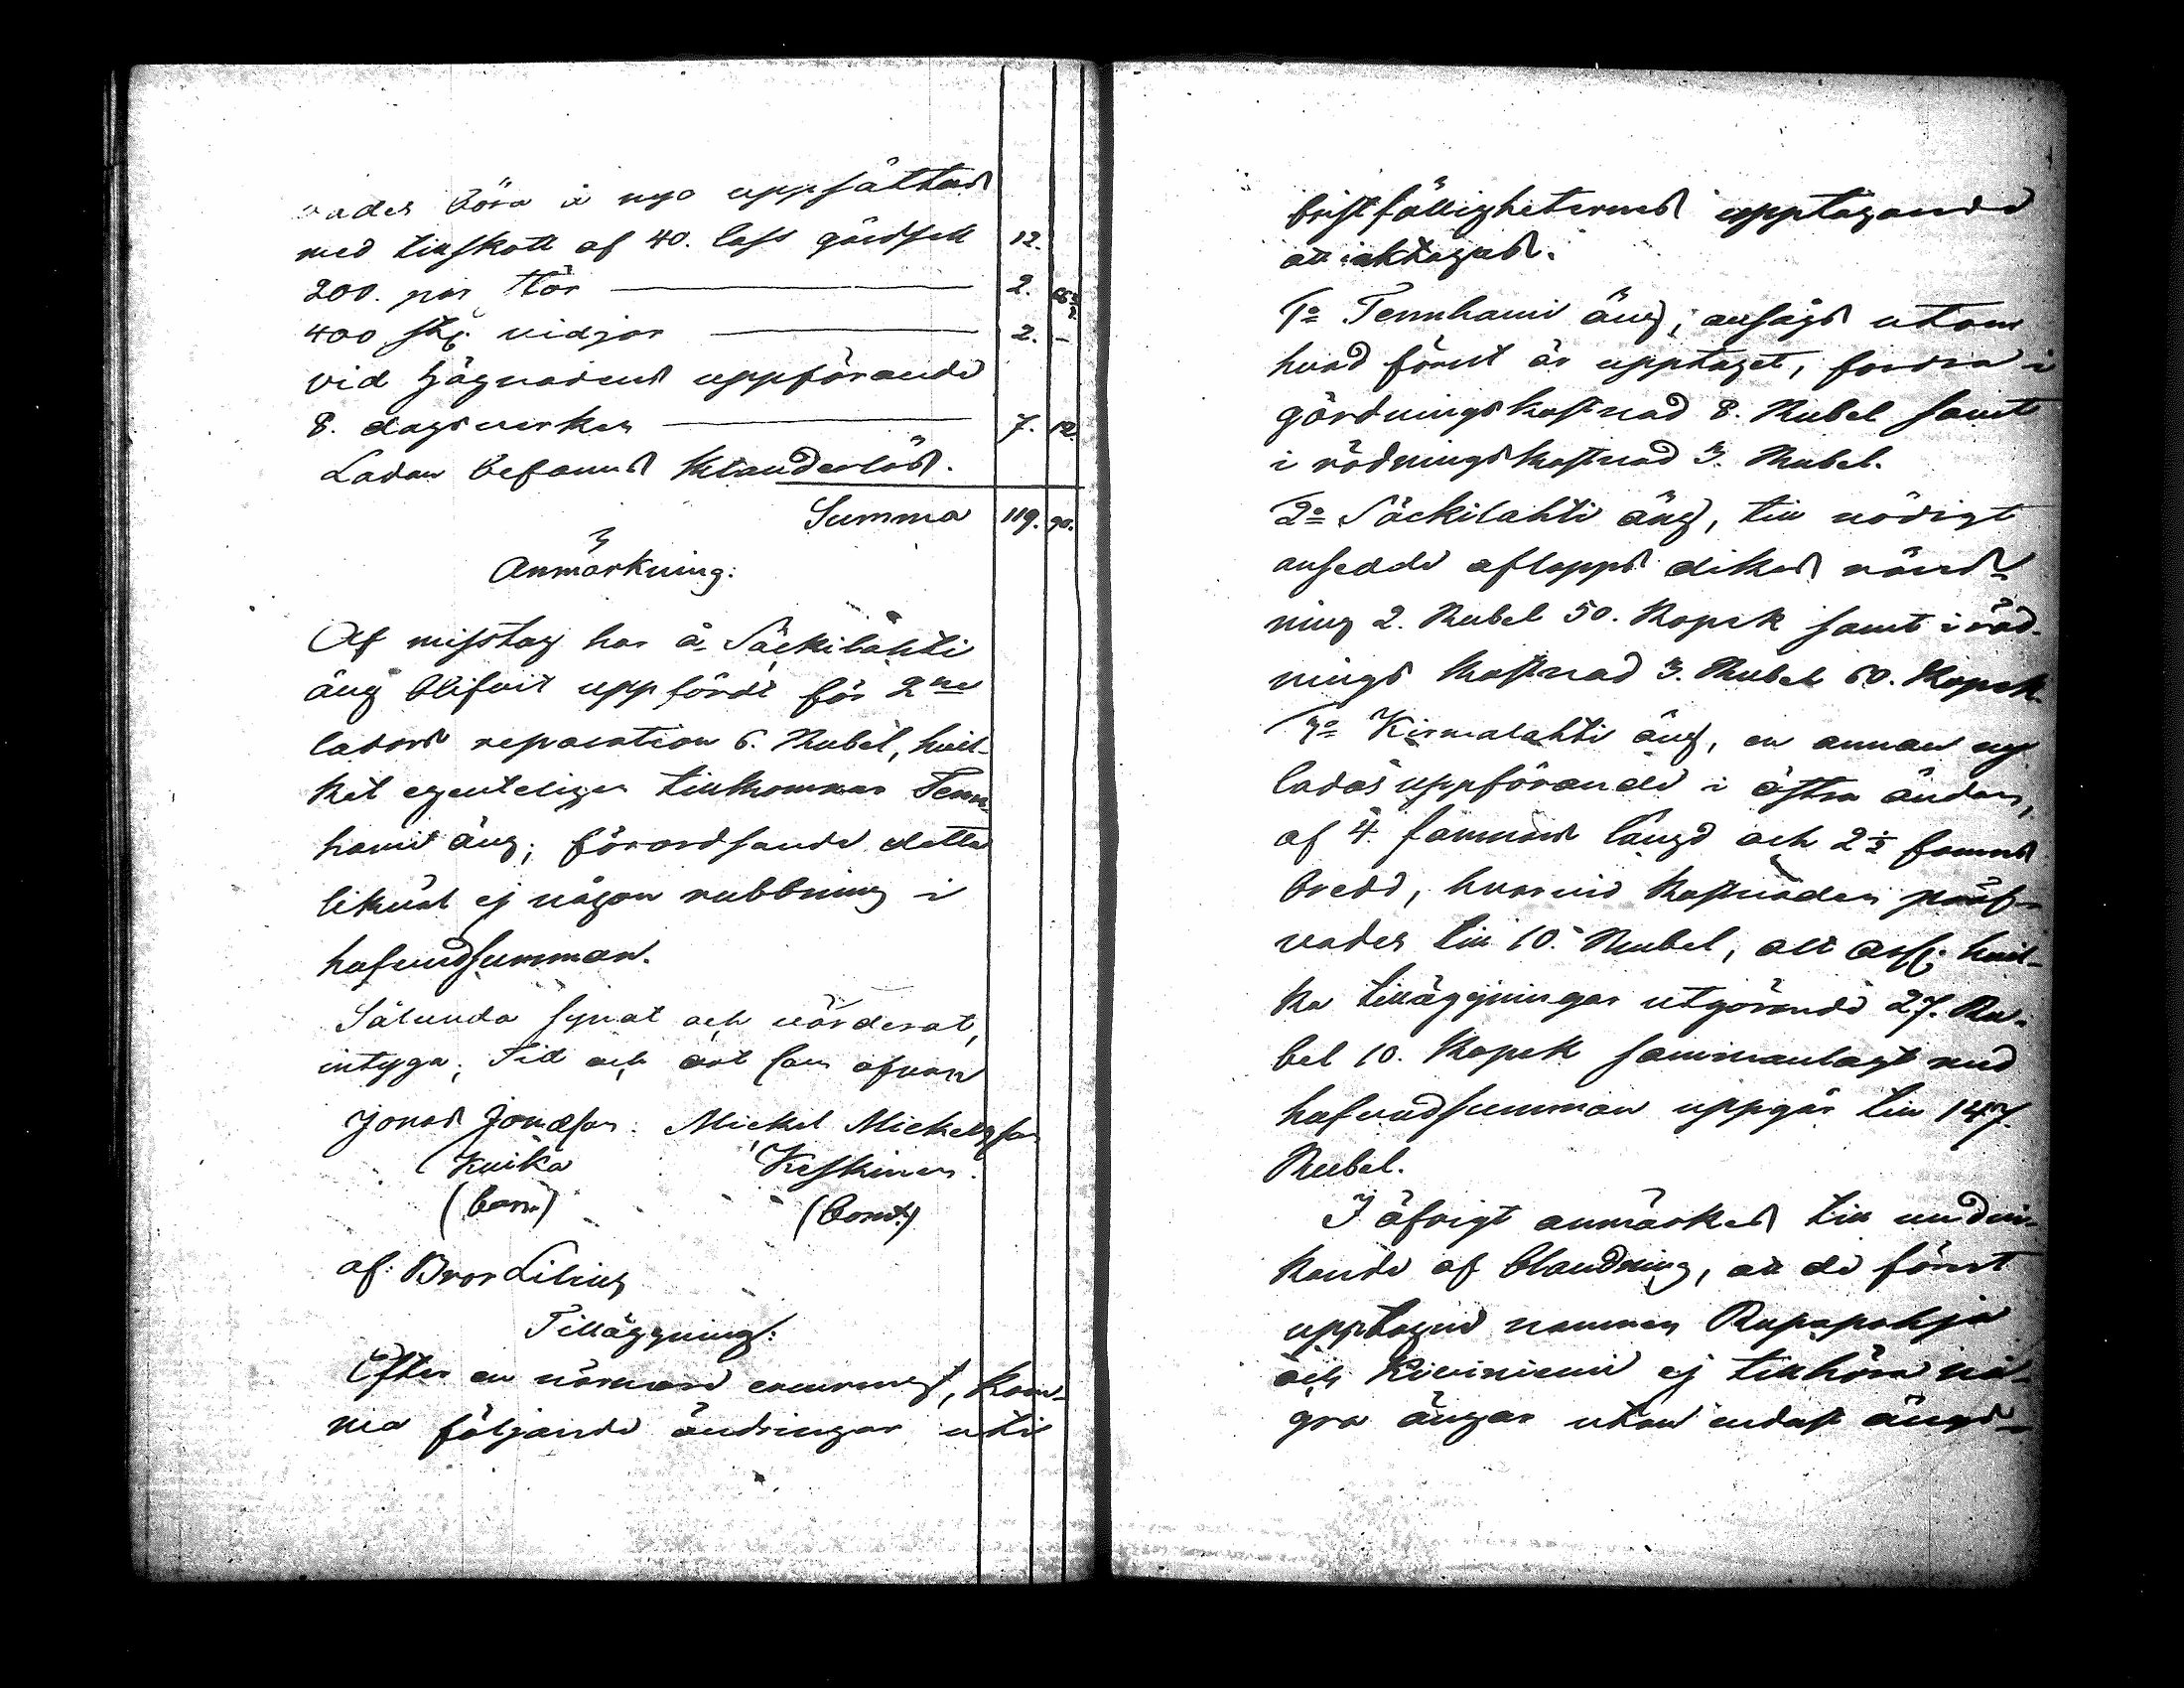 vades böra å nyo uppsättas
med tillskott af 40. lass gärdsell 12.
200. par stör 2.
400 st. vidjor 2. -
vid hägnadens uppförande
8. dagsverken 7. 12.
Ladan befanns klanderlös.
Summa 119. 90.
Anmärkning:
Af misstag har å Säckilahti
äng blifvit uppfördt för 2ne
ladors reparation 6. Rubel, hvil-
ket egenteligen tillkommer Tenn-
hami äng; förordsande detta
likväl ej någon rubbning i
hufvudsumman.
Sålunda synat och värderat,
intyga; Tid och ort som ofvan
Jonas Jonasson. Mickel Mickelsson
Kuika Keskinen.
(bom.) (bom.)
af: Bror Lilius
Tilläggning:
Efter en närmare, kom-
ma följande ändringar uti
bristfälligheternes upptagande
att iakttagas.
1o Tennhami äng, ansågs utom
hvad förut är upptaget, fordra i
gärdningskostnad 8. Rubel samt
i rödningskostnad 3. Rubel.
2o Säckilahti äng, till nödigt
ansedde aflopps dikes rens-
ning 2. Rubel 50. Kopek samt i röd-
nings kostnad 3. Rubel 60. Kopek.
3o Kirmalahti äng, en annan ny
ladas uppförande i östra ändan,
af 4. famnars längd och 2 1/2 famns
bredd, hvarvid kostnaden pröf-
vades till 10. Rubel, allt hvil-
ka tilläggningar utgörande 27. Ru-
bel 10. Kopek sammanlagt med
hufvudsumman uppgår till 147.
Rubel.
I öfrigt anmärkes till undvi-
kande af blandning, att de förut
upptagne namnen Rupapohja
och Kiviniemi ej tillhöra nå-
gra ängar utan endast ängs-